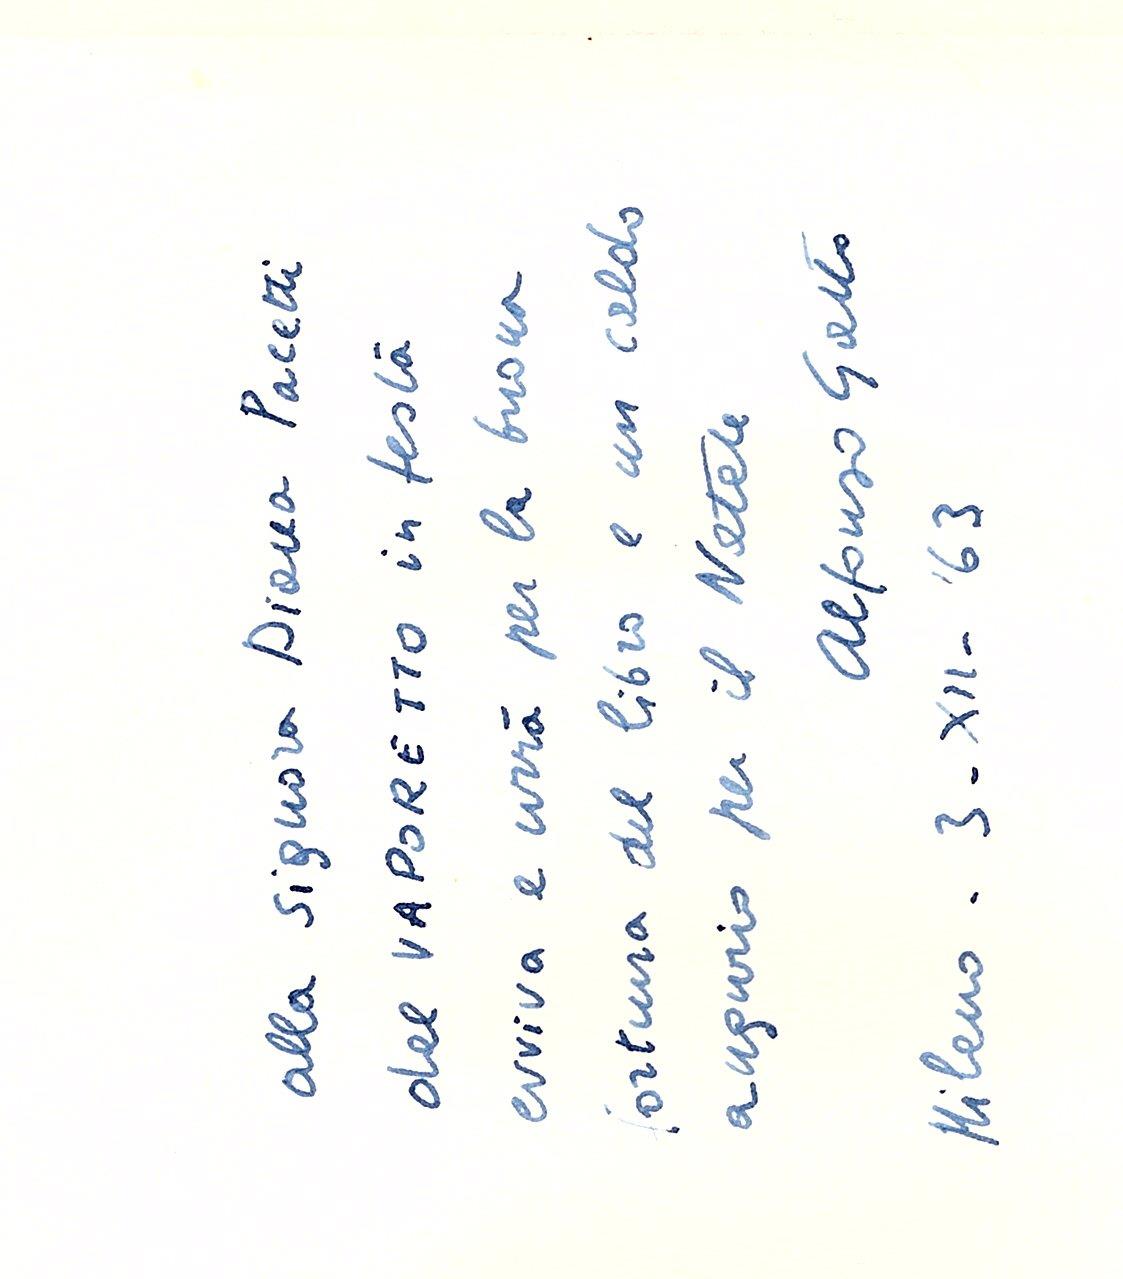 alla Signora Diana Pacetti
del VAPORETTO in testa
evviva e urrà per la buona
fortuna del libro e un caldo
augurio per il Natale
Alfonso Gatto
Milano . 3 - XII - '63